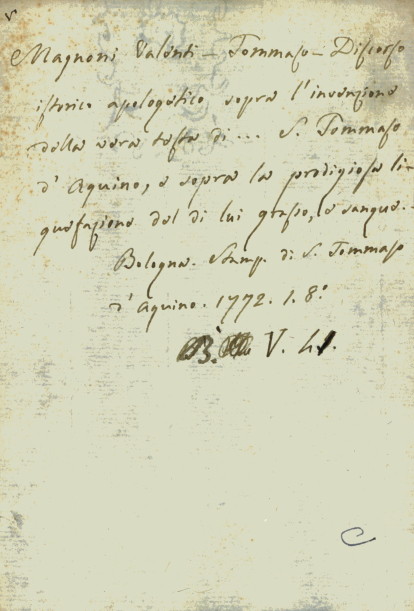 v
Magnoni Valenti - Tommaso - Discorso
istorico apologetico sopra l'invenzione
della vera testa di ... S. Tommaso
d'Aquino, e sopra la prodigiosa li-
quefazione del di lui grasso, e sangue. -
Bologna. Stamp. di S. Tommaso
d'Aquino. 1772. 1. 8.°
B. V. 41.
C